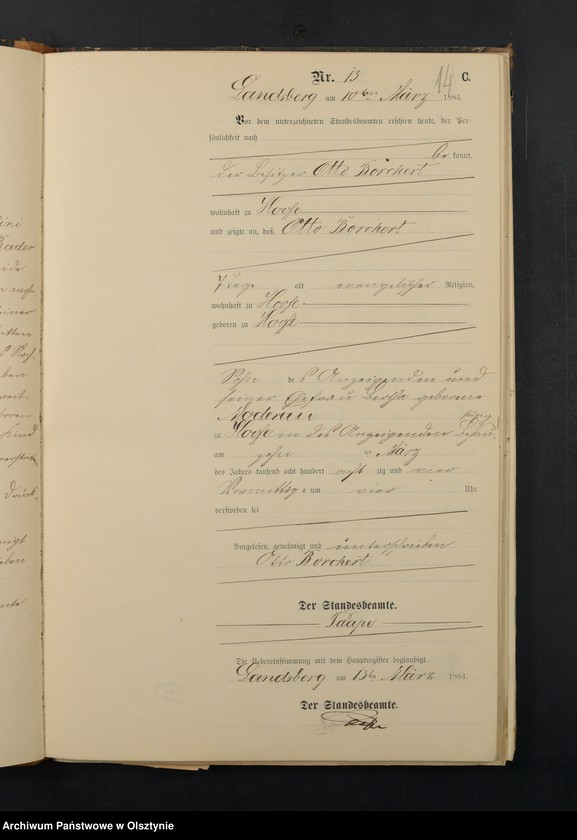 Nr. 13
14 C.
Landsberg am 10ten März 1884.
Vor dem unterzeichneten Standesbeamten erschien heute, der Per-
sönlichkeit nach
be kannt,
der Besitzer Otto Borchert
wohnhaft zu Hoofe
und zeigte an, daß Otto Borchert
7 Tage alt evangelischer Religion,
wohnhaft zu Hoofe
geboren zu Hoofe
Sohn des Anzeigenden und
seiner Ehefrau Bertha geborene
zu Hoofe in des Anzeigenden Behau-
sung
am zehn ten März
des Jahres tausend acht hundert acht zig und vier
Vormittags um vier Uhr
verstorben sei
Vorgelesen, genehmigt und unterschrieben
Otto Borchert
Der Standesbeamte.
Die Uebereinstimmung mit dem Hauptregister beglaubigt.
Landsberg am März 1884.
Der Standesbeamte.
Archiwum Państwowe w Olsztynie